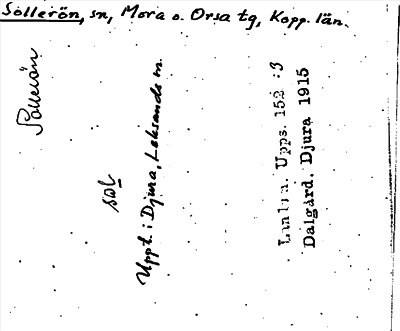 Sollerön, sn, Mora o. Orsa tg, Kopp. län.
Sollerön
sol
Uppt. i Djura, Leksands sn.
Landsm. Upps. 152 :3
Dalgård. Djura 1915